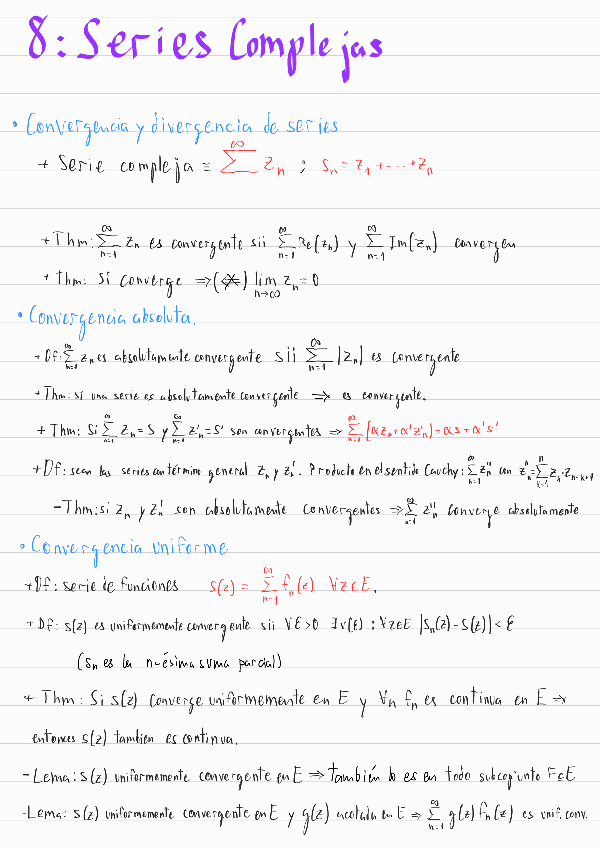 8: Series Complejas
• Convergencia y divergencia de series
+ Serie compleja ≡ ∑^∞ z_n ; s_n = z_1 + ---- + z_n
+ Thm: ∑_{n=1}^∞ z_n es convergente sii ∑_{n=1}^∞ Re(z_n) y ∑_{n=1}^∞ Im(z_n) convergen
+ thm: Si converge ⇒ (⇍) lim_{n→∞} z_n = 0
• Convergencia absoluta.
+ Df: ∑_{n=1}^∞ z_n es absolutamente convergente sii ∑_{n=1}^∞ |z_n| es convergente
+ Thm: si una serie es absolutamente convergente ⇒ es convergente.
+ Thm: Si ∑_{n=1}^∞ z_n = S y ∑_{n=1}^∞ z'_n = S' son convergentes ⇒ ∑_{n=1}^∞ (αz_n + α'z'_n) = αs + α's'
+ Df: sean las series con término general z_n y z_n'. Producto en el sentido Cauchy: ∑_{n=1}^∞ z_n'' con z_n'' = ∑_{k=1}^n z_k · z_{n-k+1}
- Thm: si z_n y z_n' son absolutamente convergentes ⇒ ∑_{n=1}^∞ z_n'' converge absolutamente
• Convergencia uniforme
+ Df: serie de funciones s(z) = ∑_{n=1}^∞ f_n(z) ∀z∈E.
+ Df: s(z) es uniformemente convergente sii ∀ε>0 ∃ν(ε) : ∀z∈E |s_n(z) - s(z)| < ε
(s_n es la n-ésima suma parcial)
+ Thm: Si s(z) converge uniformemente en E y ∀n f_n es continua en E ⇒
entonces s(z) tambien es continua.
- Lema: s(z) uniformemente convergente en E ⇒ también lo es en todo subconjunto F∈E
- Lema: s(z) uniformemente convergente en E y g(z) acotada en E ⇒ ∑_{n=1}^∞ g(z) f_n(z) es unif. conv.